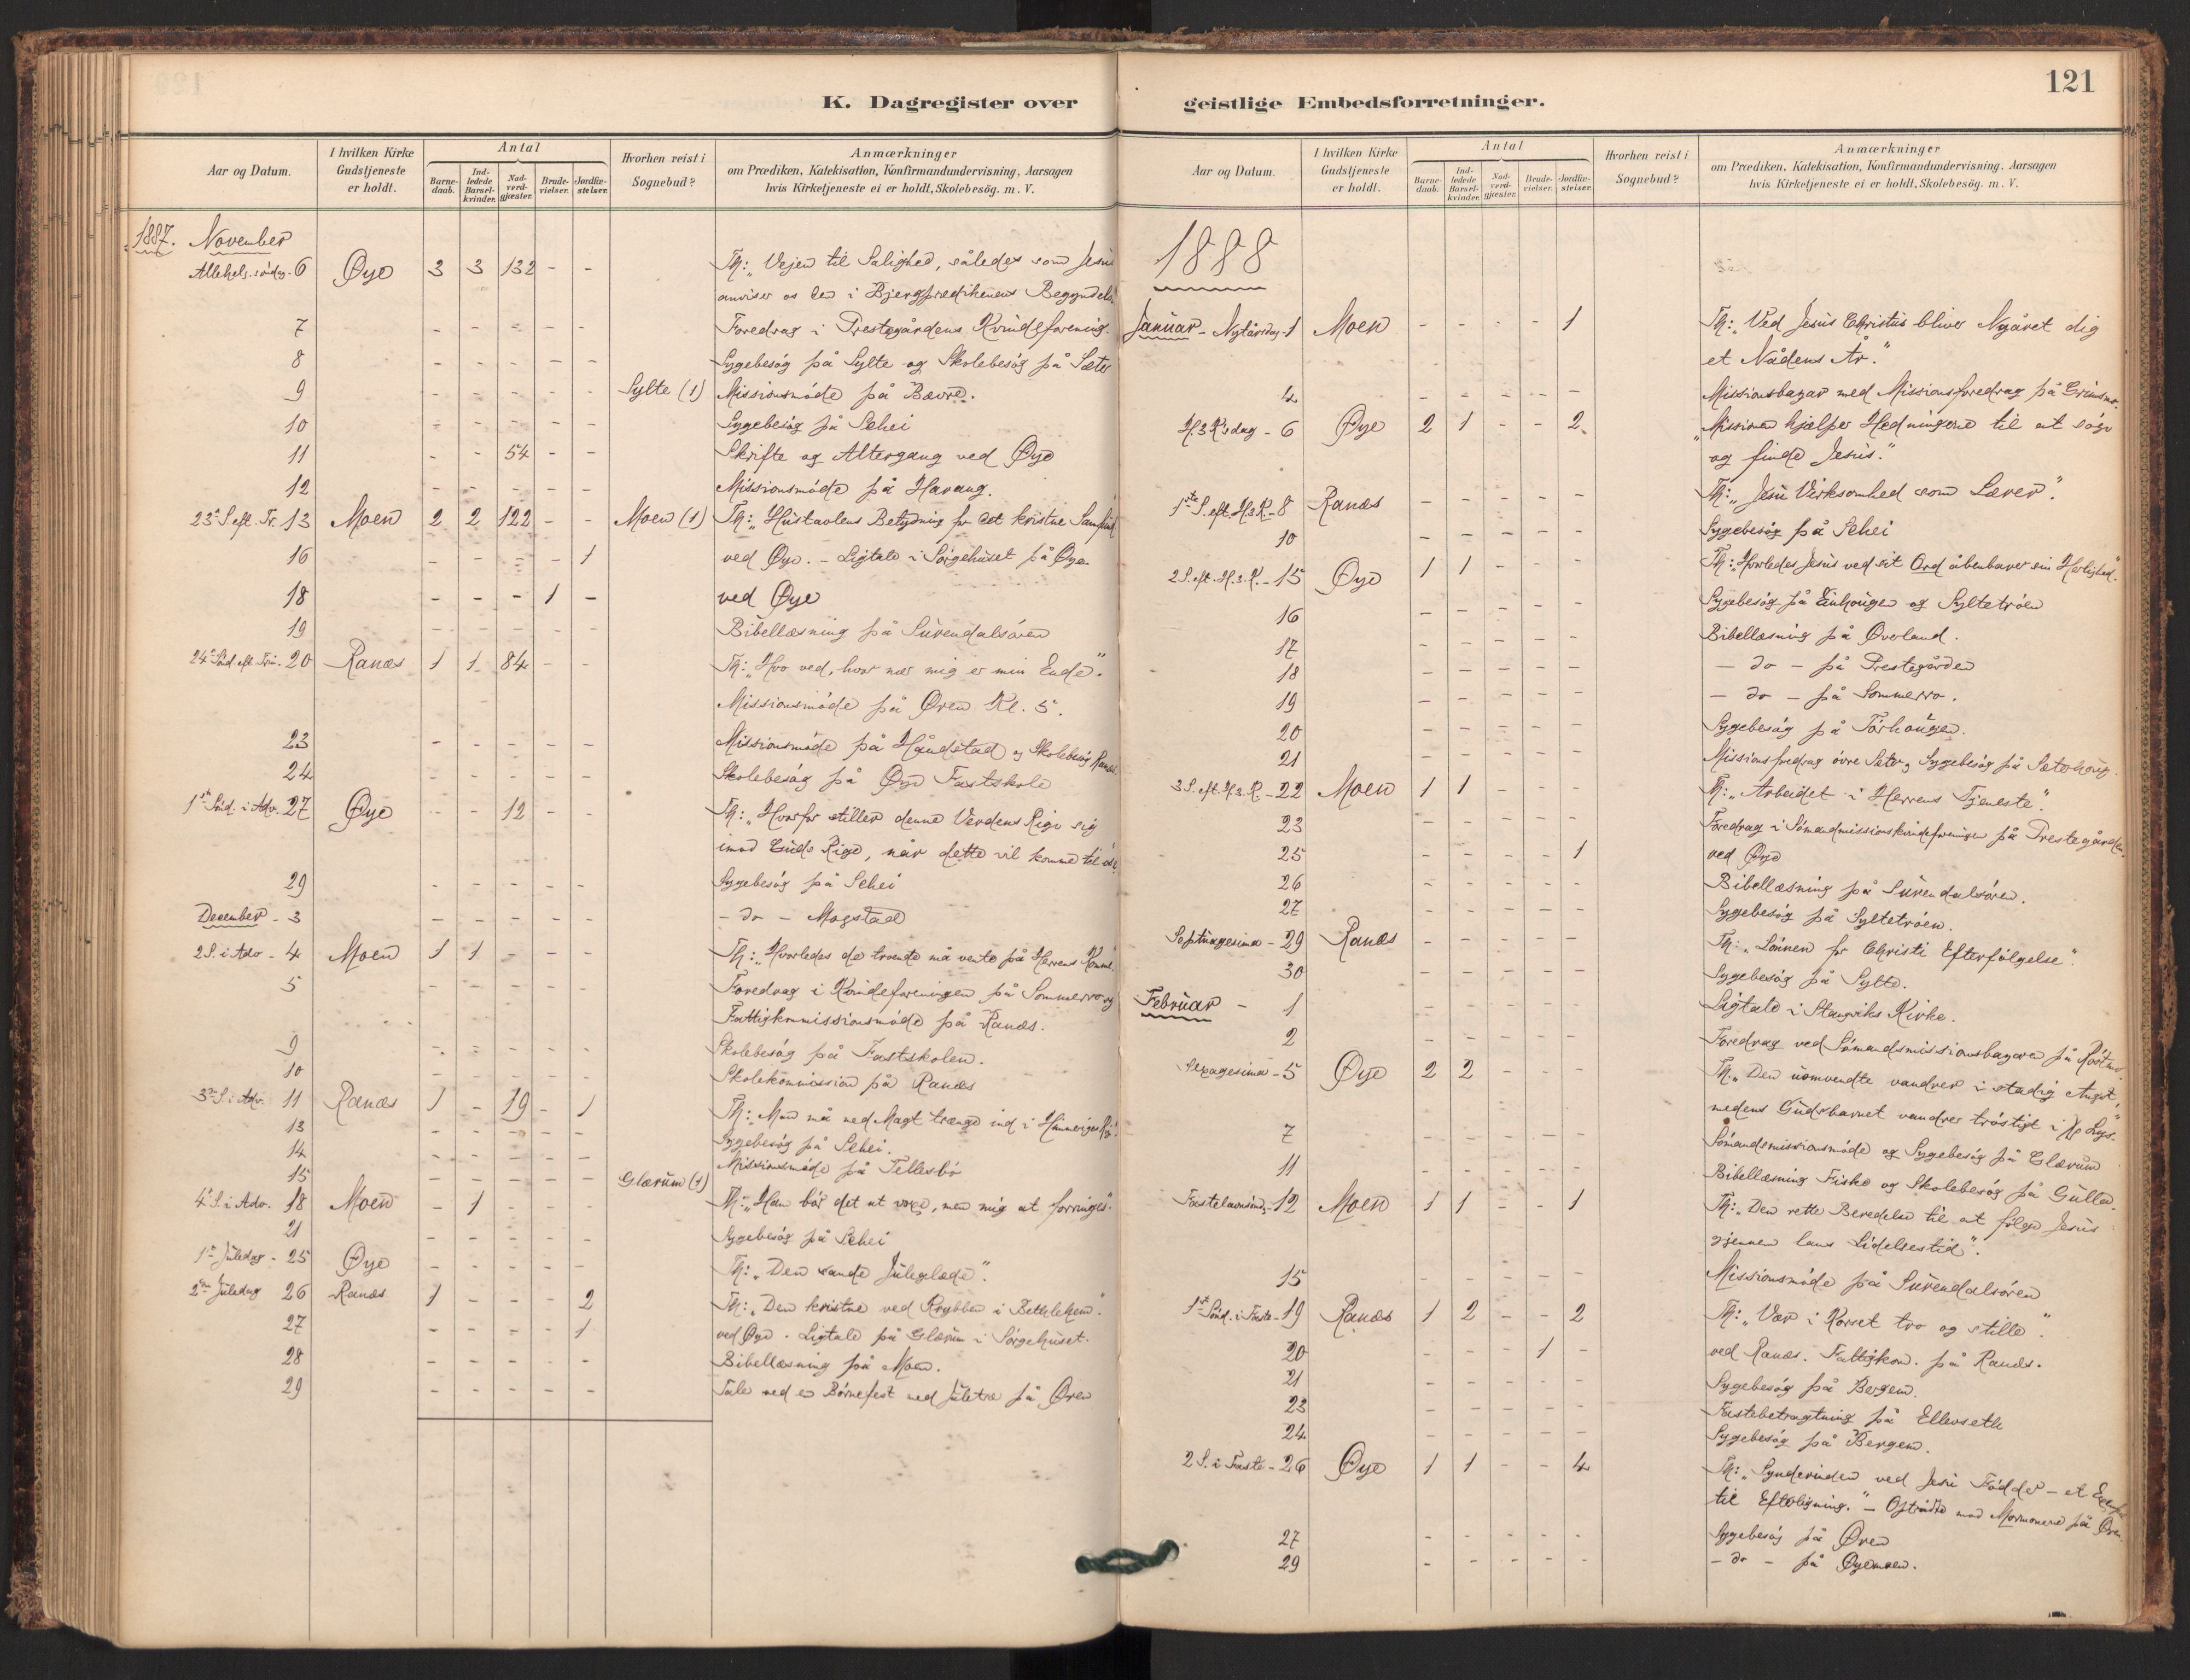 K. Dagregister over
Aar og Datum. I hvilken Kirke Gudstjeneste er holdt. Antal Barne-daab. Ind-ledede Barsel-kvinder. Nad-verd-gjæster. Brude-vielser. Jordfæ-stelser. Hvorhen reist i Sognebud? Anmærkninger om Prædiken, Katekisation, Konfirmandundervisning, Aarsagen hvis Kirketjeneste ei er holdt, Skolebesög. m. V.
1887. November
Allehels. söndag - 6 Øye 3 3 132 - - Th: "Vejen til Salighed, således som Jesus
anviser os den i Bjergprædikenens Begyndelse
7 - - - - - Foredrag i Prestegårdens Kvindeforening.
8 - - - - - Sygebesög på Sylte og Skolebesög på Sæter
9 - - - - - Sylte (1) Missionsmöde på Bævre.
10 - - - - - Sygebesög på Schei
11 - - 54 - - Skrifte og Altergang ved Øye
12 - - - - - Missionsmöde på Harang.
23de S. eft. Tr. 13 Moen 2 2 122 - - Moen (1) Th: "Hustavlens Betydning for det kristne Samfund
16 - - - - 1 ved Øye. - Ligtale i Sörgehuset på Øye
18 - - - 1 - ved Øye
19 - - - - - Bibellæsning på Surendalsören
24de Sönd. eft. Trin. 20 Ranæs 1 1 84 - - Th: "Hvo ved, hvor nær mig er min Ende".
Missionsmöde på Øren Kl. 5.
23 - - - - - Missionsmöde på Håndstad og Skolebesög Ranæs
24 - - - - - Skolebesög på Øye Fastskole
1ste Sönd. i Adv. 27 Øye - - 12 - - Th: "Hvorfor stiller denne Verdens Rige sig
imod Guds Rige, når dette vil komme til os
29 - - - - - Sygebesög på Schei
December - 3 - - - - - - do - Mogstad
2 S. i Adv - 4 Moen 1 1 - - - Th: "Hvorledes de troende må vente på Herrens Komme."
5 - - - - - Foredrag i Kvindeforeningen på Sommerro og
Fattigkommissionsmöde på Ranæs.
9 - - - - - Skolebesög på Fastskolen.
10 - - - - - Skolekommission på Ranæs
3die S. i Adv. 11 Ranæs 1 - 19 - 1 Th: "Man må med Magt trænge ind i Himmeriges Rige
13 - - - - - Sygebesög på Schei.
14 - - - - - Missionsmöde på Tellesbö
15 - - - - - Glærum (1)
4de S. i Adv. 18 Moen - 1 - - - Th: "Ham bör det at voxe, men mig at forringes".
21 - - - - - Sygebesög på Schei
1ste Juledag - 25 Øye - - - - - Th: "Den sande Juleglæde".
2den Juledag 26 Ranæs 1 - - - 2 Th: "Den kristne ved Krybben i Bethlehem".
27 - - - - 1 ved Øye. Ligtale på Glærum i Sörgehuset.
28 - - - - - Bibellæsning på Moen.
29 - - - - - Tale ved en Börnefest med Juletræ på Øren
121
geistlige Embedsforretninger.
Aar og Datum. I hvilken Kirke Gudstjeneste er holdt. Antal Barne-daab. Ind-ledede Barsel-kvinder. Nad-verd-gjæster. Brude-vielser. Jordfæ-stelser. Hvorhen reist i Sognebud? Anmærkninger om Prædiken, Katekisation, Konfirmandundervisning, Aarsagen hvis Kirketjeneste ei er holdt, Skolebesög. m. V.
1888
Januar - Nytårsdag - 1 Moen - - - - 1 Th: "Ved Jesus Christus bliver Nyåret dig
et Nådens År."
4 - - - - - Missionsbazar med Missionsforedrag på Grimsmo.
H. 3 K's dag - 6 Øye 2 1 - - 2 "Missionen hjælper Hedningerne til at söge
og finde Jesus."
1ste S. eft. H3K - 8 Ranæs - - - - - Th: "Jesu Virksomhed som Lærer".
10 - - - - - Sygebesög på Schei
2 S. eft. H. 3. K. - 15 Øye 1 1 - - - Th: "Hvorledes Jesus ved sit Ord åbenbarer sin Herlighed."
16 - - - - - Sygebesög på Einhougen og Syltetröen
17 - - - - - Bibellæsning på Överland.
18 - - - - - - do - på Prestegården
19 - - - - - - do - på Sommerro.
20 - - - - - Sygebesög på Torhougen.
21 - - - - - Missionsforedrag övre Sæter og Sygebesög på Sæterhoug.
3 S. eft. H. 3. K. - 22 Moen 1 1 - - - Th: "Arbeidet i Herrens Tjeneste".
23 - - - - - Foredrag i Sömandsmissionskvindeforeningen på Prestegården.
25 - - - - 1 ved Øye
26 - - - - - Bibellæsning på Surendalsören.
27 - - - - - Sygebesög på Syltetröen.
Septuagesima - 29 Ranæs - - - - - Th: "Lönnen for Christi Efterfölgelse".
30 - - - - - Sygebesög på Sylte.
Februar - 1 - - - - - Ligtale i Stangviks Kirke.
2 - - - - - Foredrag ved Sömandsmissionsbazaren på
Sexagesima - 5 Øye 2 2 - - - Th: "Den uomvendte vandrer i stadig Angst,
medens Gudsbarnet vandrer tröstigt i Lys."
7 - - - - - Sömandsmissionsmöde og Sygebesög på Glærum
11 - - - - - Bibellæsning Fiske og Skolebesög på Gulla.
Fastelavnsönd. - 12 Moen 1 1 - - 1 Th: "Den rette Beredelse til at fölge Jesus
gjennem hans Lidelsestid".
15 - - - - - Missionsmöde på Surendalsören
1ste Sönd. i Faste - 19 Ranæs 1 2 - - 2 Th: "Vær i Korset tro og stille".
20 - - - 1 - ved Ranæs. Fattigkom. på Ranæs.
21 - - - - - Sygebesög på Bergem.
23 - - - - - Fastebetragtning på Ellevseth
24 - - - - - Sygebesög på Bergem.
2 S. i Faste - 26 Øye 1 1 - - 4 Th: "Synderinden ved Jesu Födder - et Exempel
til Efterligning." - Optrådte mod Mormonerne på Øren
27 - - - - - Sygebesög på Øren
29 - - - - - - do - på Øyemoen.